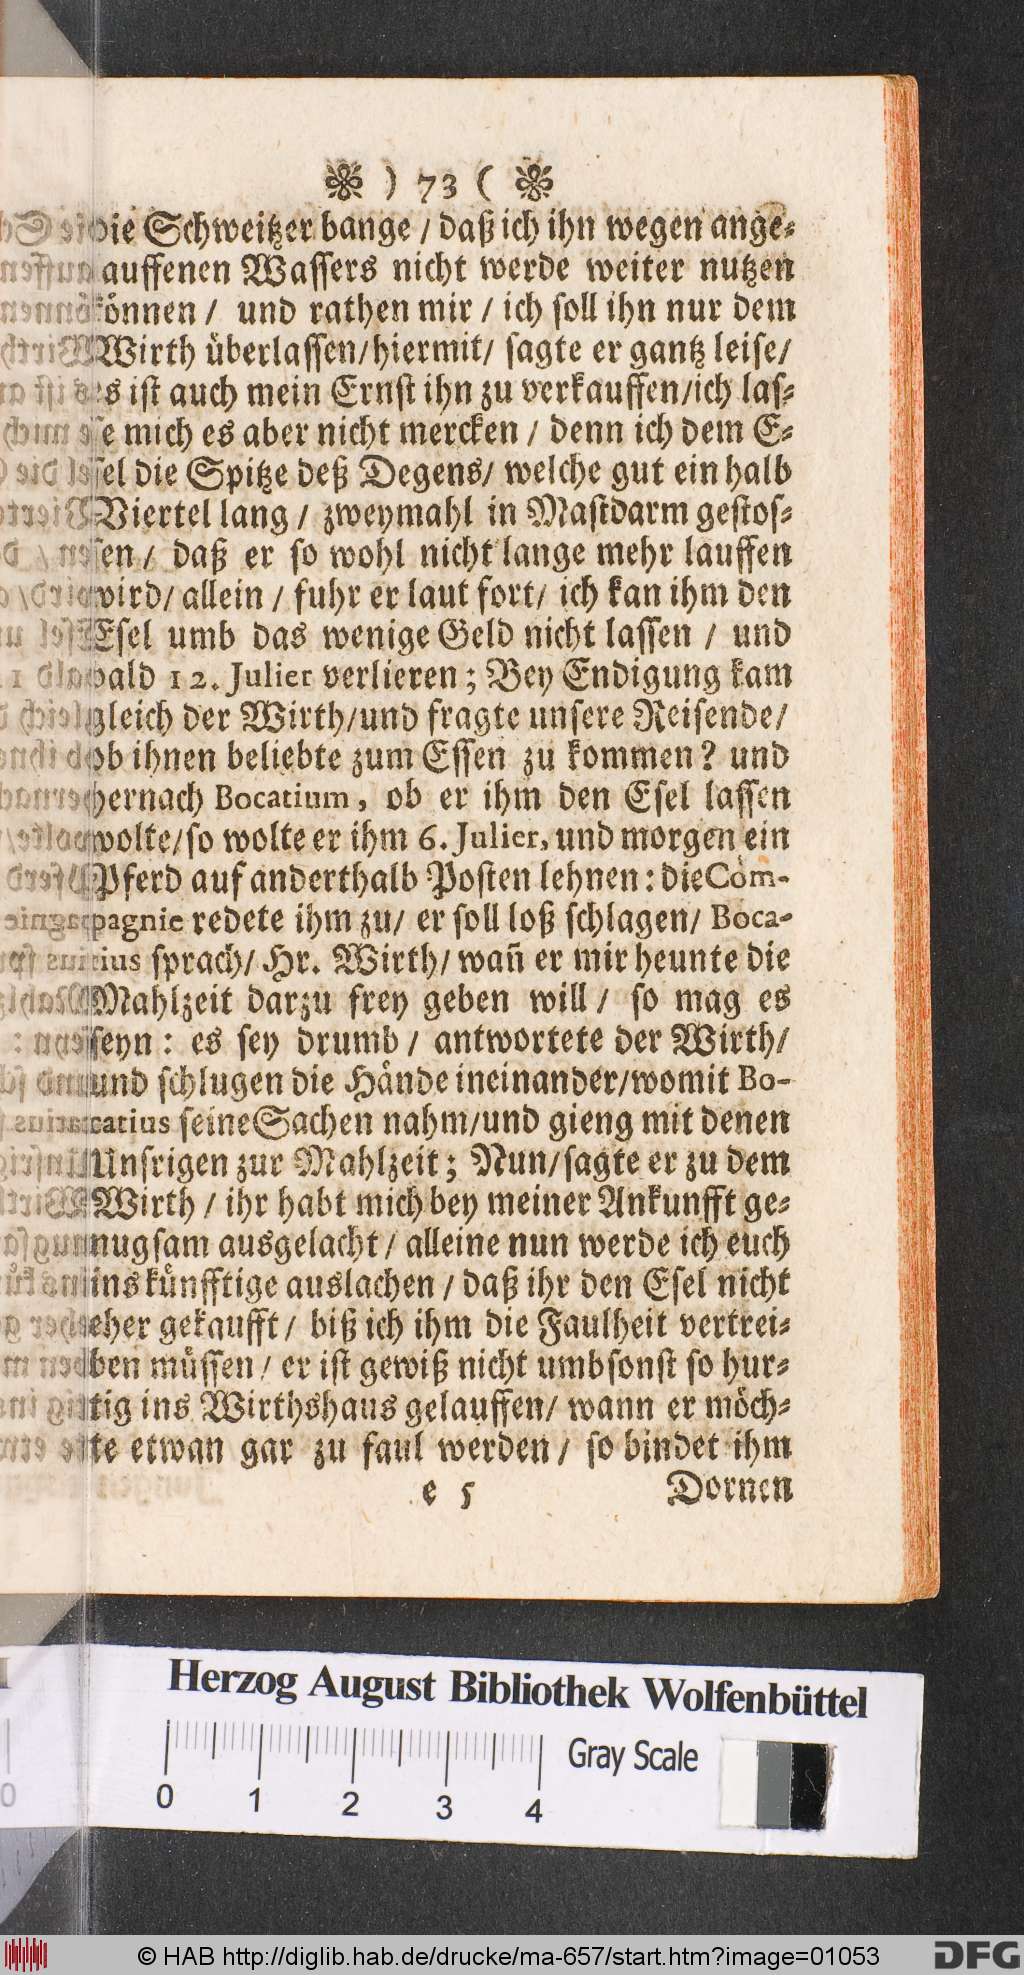 ) 73 (
die Schweitzer bange / daß ich ihn wegen ange-
lauffenen Wassers nicht werde weiter nutzen
können / und rathen mir / ich soll ihn nur dem
Wirth überlassen/hiermit/ sagte er gantz leise/
es ist auch mein Ernst ihn zu verkauffen/ich las-
se mich es aber nicht mercken / denn ich dem E-
sel die Spitze deß Degens/ welche gut ein halb
Viertel lang / zweymahl in Mastdarm gestos-
sen / daß er so wohl nicht lange mehr lauffen
wird/ allein / fuhr er laut fort/ ich kan ihm den
Esel umb das wenige Geld nicht lassen / und
bald 12. Julier verlieren ; Bey Endigung kam
gleich der Wirth/und fragte unsere Reisende/
ob ihnen beliebte zum Essen zu kommen? und
hernach Bocatium, ob er ihm den Esel lassen
wolte/so wolte er ihm 6. Julier, und morgen ein
Pferd auf anderthalb Posten lehnen : die Com-
pagnie redete ihm zu/ er soll loß schlagen/ Boca-
tius sprach/ Hr. Wirth/ wañ er mir heunte die
Mahlzeit darzu frey geben will / so mag es
seyn : es sey drumb / antwortete der Wirth/
und schlugen die Hände ineinander/womit Bo-
catius seine Sachen nahm/und gieng mit denen
Unsrigen zur Mahlzeit ; Nun/sagte er zu dem
Wirth / ihr habt mich bey meiner Ankunfft ge-
nugsam ausgelacht / alleine nun werde ich euch
ins künfftige auslachen / daß ihr den Esel nicht
eher gekaufft / biß ich ihm die Faulheit vertrei-
ben müssen / er ist gewiß nicht umbsonst so hur-
tig ins Wirthshaus gelauffen/ wann er möch-
te etwan gar zu faul werden / so bindet ihm
e 5 Dornen
Herzog August Bibliothek Wolfenbüttel
0 1 2 3 4 Gray Scale
© HAB http://diglib.hab.de/drucke/ma-657/start.htm?image=01053 DFG